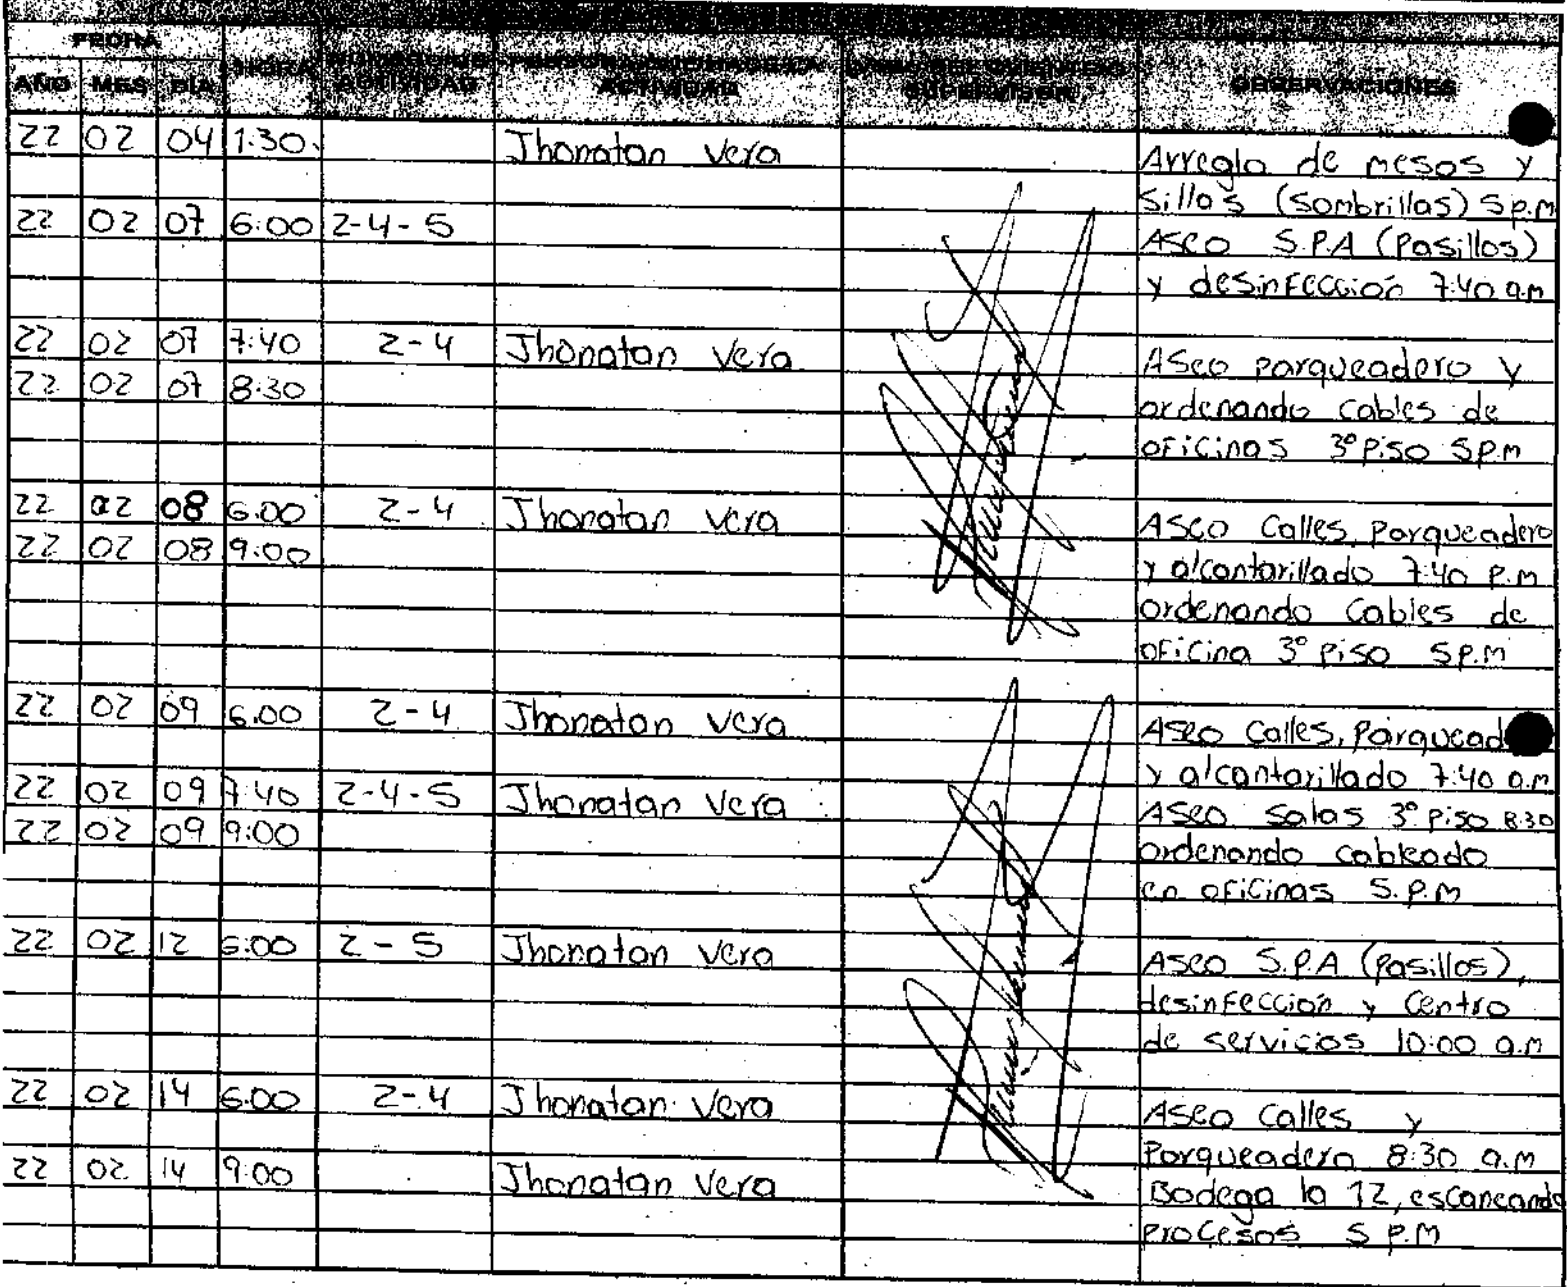 FECHA
AÑO MES DÍA HORA ACTIVIDAD ACTIVIDAD SUPERVISOR OBSERVACIONES
22 02 04 1:30. Jhonatan Vera
Arreglo de mesas y
sillas (sombrillas) 5 p.m
22 02 07 6:00 2-4-5
Aseo S.P.A (Pasillos)
y desinfección 7:40 a.m
22 02 07 7:40 2-4 Jhonatan Vera
Aseo parqueadero y
22 02 07 8:30
ordenando cables de
oficinas 3º piso 5 p.m
22 02 08 6:00 2-4 Jhonatan Vera
Aseo Calles, Parqueadero
22 02 08 9:00
y alcantarillado 7:40 p.m
ordenando Cables de
oficina 3º piso 5 p.m
22 02 09 6:00 2-4 Jhonatan Vera
Aseo Calles, Parquead
y alcantarillado 7:40 a.m
22 02 09 7:40 2-4-5 Jhonatan Vera
Aseo salas 3º piso 8:30
22 02 09 9:00
ordenando cableado
en oficinas 5. p.m
22 02 12 6:00 2-5 Jhonatan Vera
Aseo S.P.A (pasillos),
desinfección y Centro
de servicios 10:00 a.m
22 02 14 6:00 2-4 Jhonatan Vera
Aseo Calles y
Parqueadero 8:30 a.m
22 02 14 9:00 Jhonatan Vera
Bodega la 12, escaneando
procesos 5 p.m